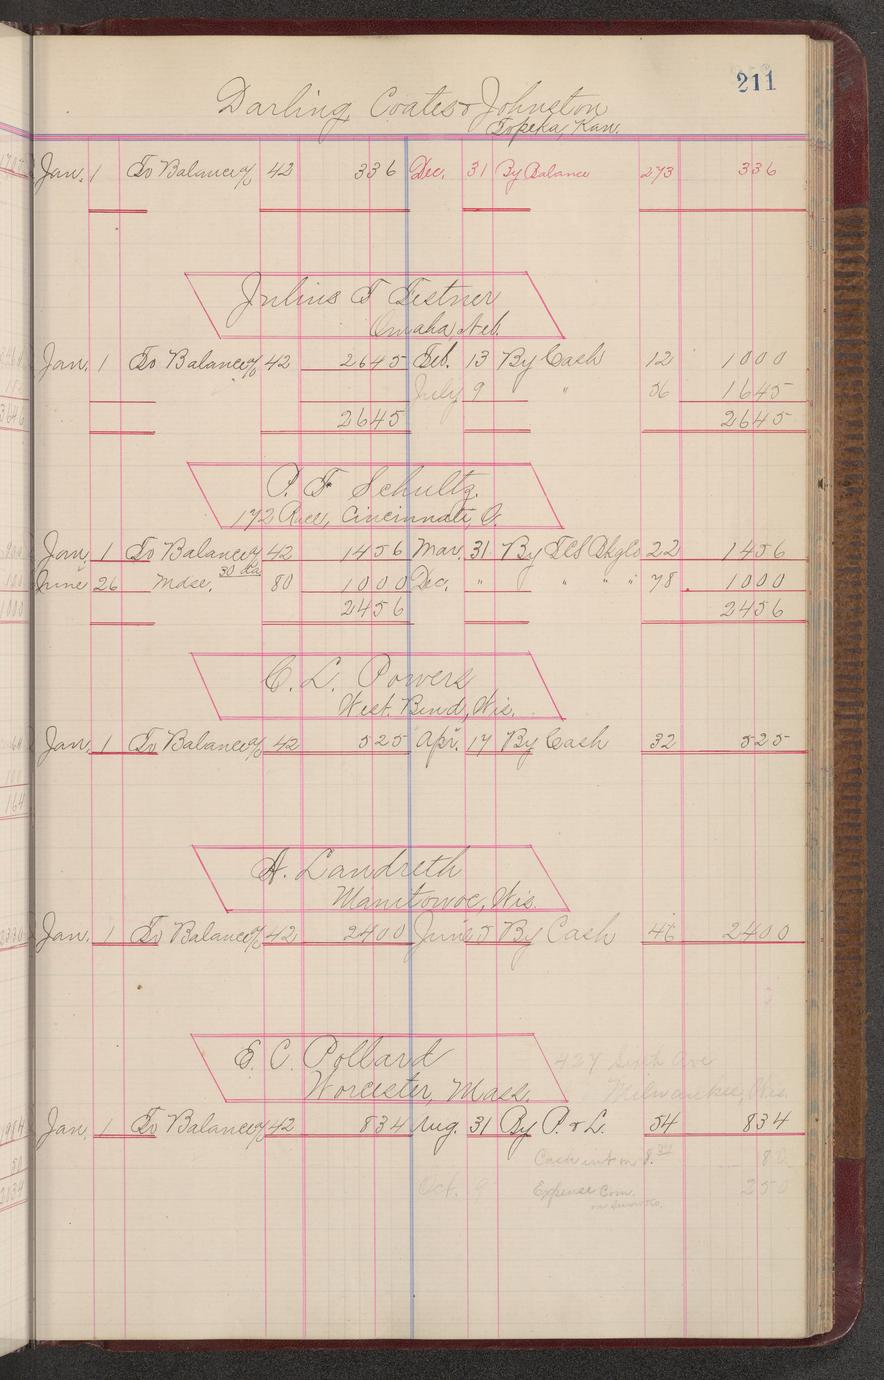 211
Darling Coates & Johnston
Topeka, Kan.
Jan. 1 To Balance % 42 336 Dec. 31 By Balance 273 336
Julius T Festner
Omaha Neb.
Jan. 1 To Balance % 42 2645 Feb. 13 By Cash 12 1000
July 9 " 56 1645
2645 2645
P. F. Schultz.
172 Race, Cincinnati O.
Jan. 1 To Balance % 42 1456 Mar. 31 By 22 1456
June 26 Mdse. 30 da 80 1000 Dec. " " " " 78 1000
2456 2456
C. L. Powers
West Bend, Wis.
Jan. 1 To Balance % 42 525 Apr. 17 By Cash 32 525
A. Landreth
Manitowoc, Wis.
Jan. 1 To Balance % 42 2400 June 5 By Cash 46 2400
E. C. Pollard
Worcester, Mass.
427 Sixth Ave
Milwaukee, Wis.
Jan. 1 To Balance % 42 834 Aug. 31 By P. & L. 54 834
Cash int on 8.
Oct. 9 Expense Com. 250